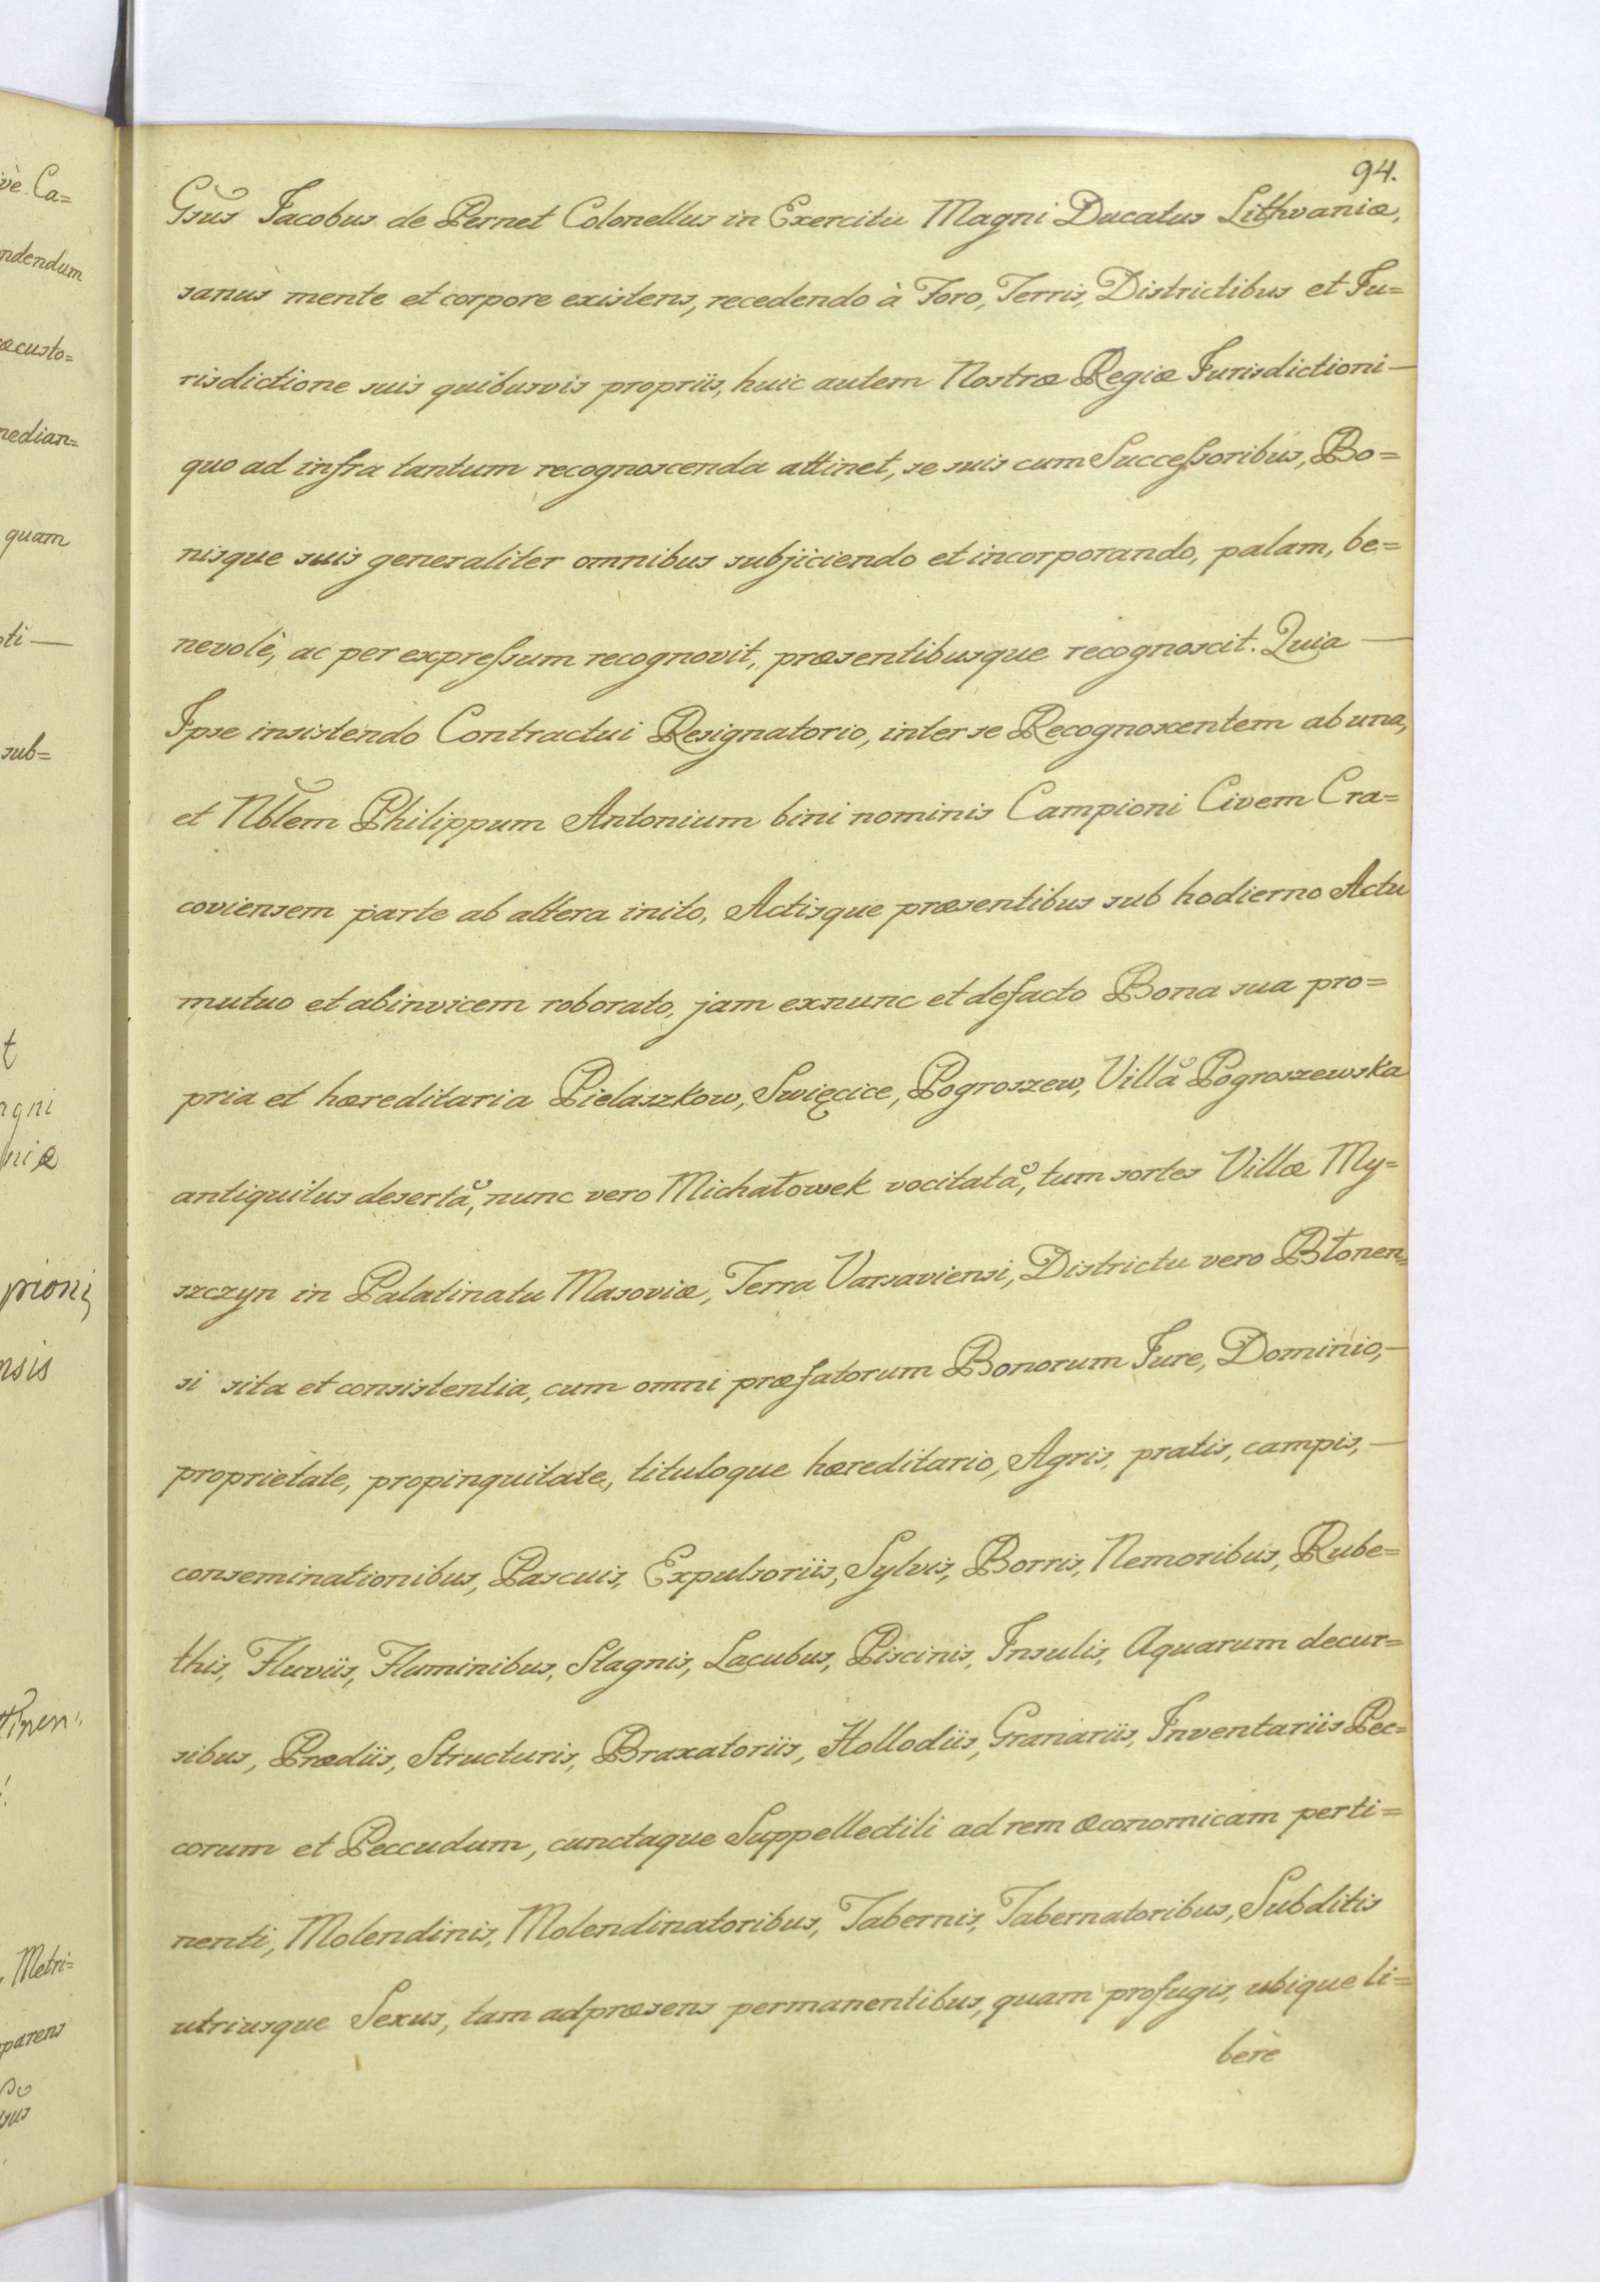 94.
Gsus Jacobus de Pernet Colonellus in Exercitu Magni Ducatus Lithvaniæ,
sanus mente et corpore existens, recedendo à Foro, Terris, Districtibus et Ju=
risdictione suis quibusvis propriis, huic autem Nostræ Regiæ Jurisdictioni —
quo ad infra tantum recognoscenda attinet, se suis cum Successoribus, Bo=
nisque suis generaliter omnibus subjiciendo et incorporando, palam, be=
nevolè, ac per expressum recognovit, præsentibusque recognoscit. Quia —
Ipse insistendo Contractui Resignatorio, inter se Recognoscentem ab una,
et Nblem Philippum Antonium bini nominis Campioni Civem Cra=
coviensem parte ab altera inito, Actisque præsentibus sub hodierno Actu
mutuo et abinvicem roborato, jam exnunc et defacto Bona sua pro=
pria et hæreditaria Pielaszkow, Swięcice, Pogroszew, Villå Pogroszewska
antiquitus desertå, nunc vero Michałowek vocitatå, tum sortes Villæ My=
szczyn in Palatinatu Masoviæ, Terra Varsaviensi, Districtu vero Błonen=
si sita et consistentia, cum omni præfatorum Bonorum Jure, Dominio, —
proprietate, propinquitate, tituloque hæreditario, Agris, pratis, campis, —
conseminationibus, Pascuis, Expulsoriis, Sylvis, Borris, Nemoribus, Rube=
this, Fluviis, Fluminibus, Stagnis, Lacubus, Piscinis, Insulis, Aquarum decur=
sibus, Prædiis, Structuris, Braxatoriis, Hollodiis, Granariis, Inventariis Pec=
corum et Peccudum, cunctaque Suppellectili ad rem œconomicam perti=
nenti, Molendinis, Molendinatoribus, Tabernis, Tabernatoribus, Subditis
utriusque Sexus, tam adpræsens permanentibus, quam profugis, ubique li=
bère